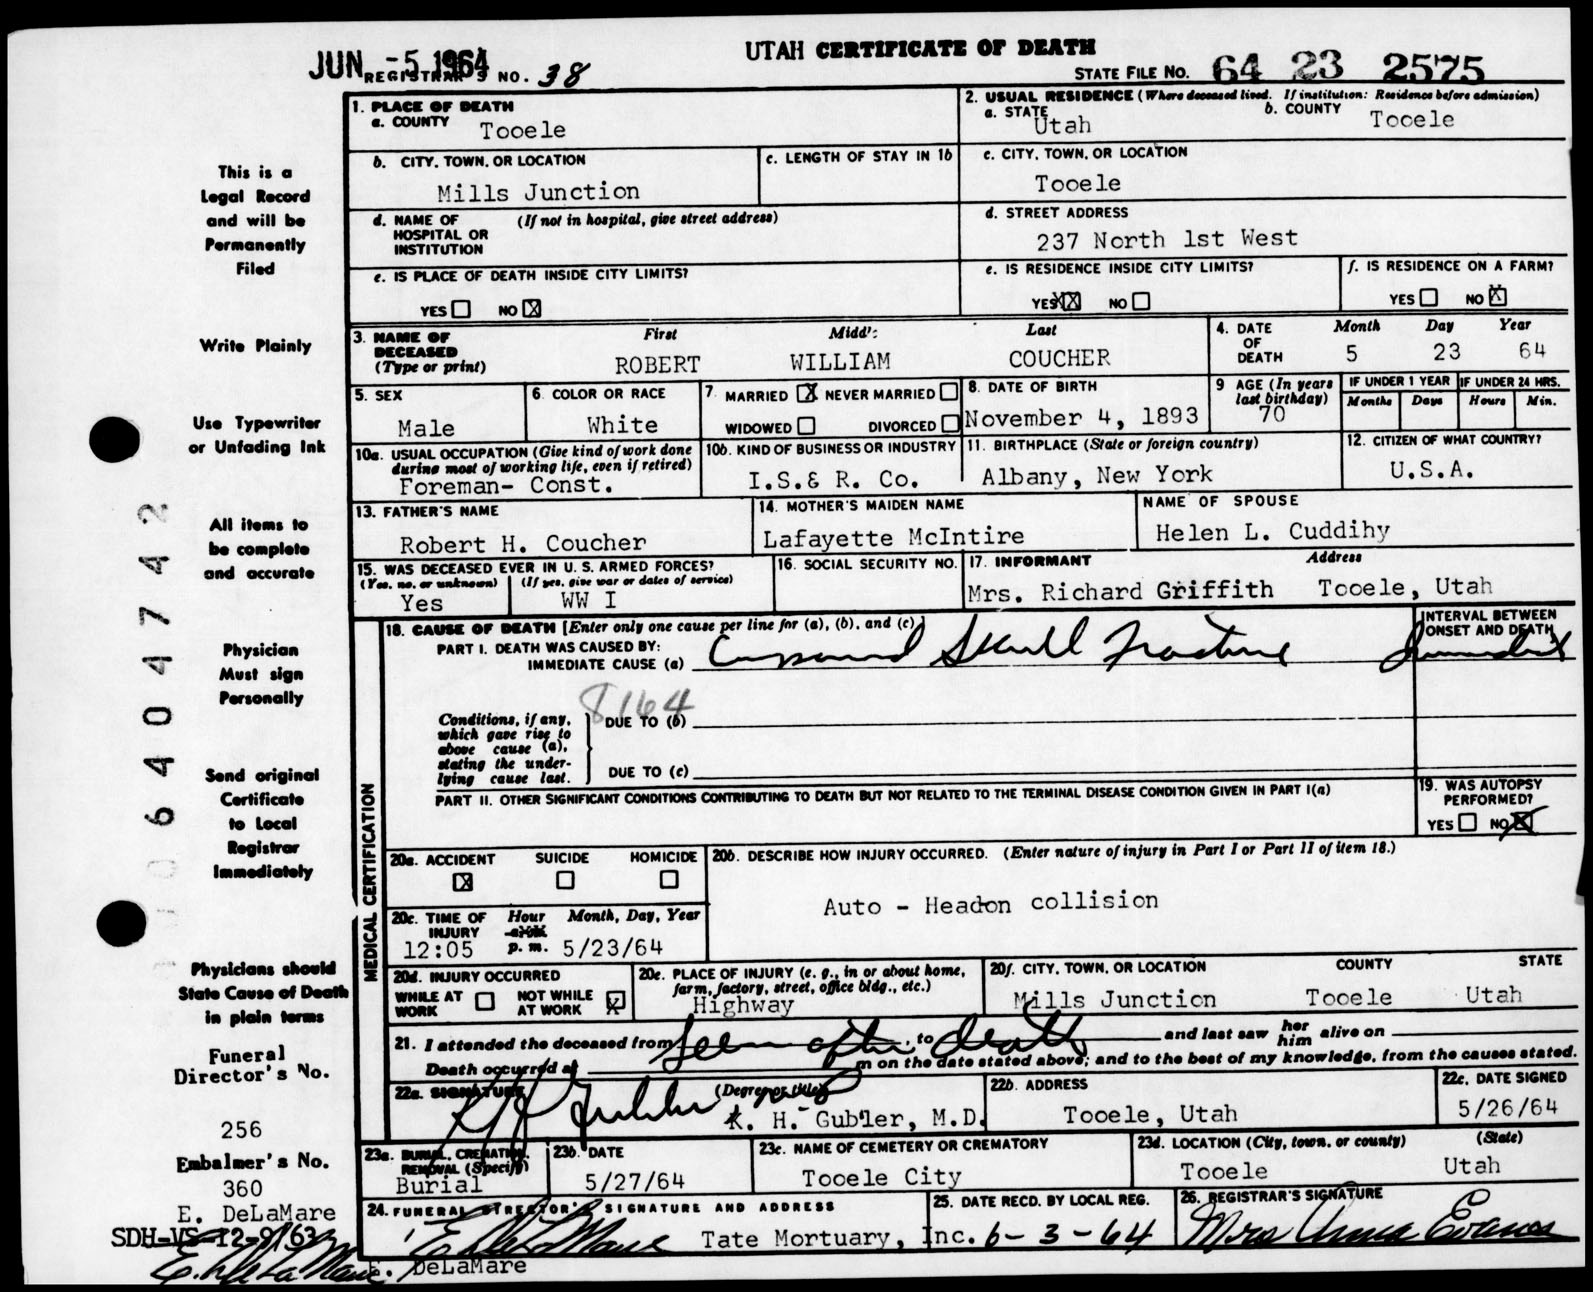 JUN -5 1964
UTAH CERTIFICATE OF DEATH
REGISTRAR'S NO. 38
STATE FILE NO. 64 23 2575
This is a
Legal Record
and will be
Permanently
Filed
Write Plainly
Use Typewriter
or Unfading Ink
All items to
be complete
and accurate
Physician
Must sign
Personally
Send original
Certificate
to Local
Registrar
Immediately
Physicians should
State Cause of Death
in plain terms
Funeral
Director's No.
256
Embalmer's No.
360
E. DeLaMare
SDH-VS 12-9/63
6404742
1. PLACE OF DEATH
a. COUNTY Tooele
2. USUAL RESIDENCE (Where deceased lived. If institution: Residence before admission)
a. STATE Utah
b. COUNTY Tooele
b. CITY, TOWN, OR LOCATION
Mills Junction
c. LENGTH OF STAY IN 1b
c. CITY, TOWN, OR LOCATION
Tooele
d. NAME OF HOSPITAL OR INSTITUTION (If not in hospital, give street address)
d. STREET ADDRESS
237 North 1st West
e. IS PLACE OF DEATH INSIDE CITY LIMITS?
YES NO X
e. IS RESIDENCE INSIDE CITY LIMITS?
YES XX NO
f. IS RESIDENCE ON A FARM?
YES NO X
3. NAME OF DECEASED (Type or print)
First Middle Last
ROBERT WILLIAM COUCHER
4. DATE OF DEATH
Month Day Year
5 23 64
5. SEX
Male
6. COLOR OR RACE
White
7. MARRIED X NEVER MARRIED
WIDOWED DIVORCED
8. DATE OF BIRTH
November 4, 1893
9 AGE (In years last birthday)
70
IF UNDER 1 YEAR IF UNDER 24 HRS.
Months Days Hours Min.
10a. USUAL OCCUPATION (Give kind of work done during most of working life, even if retired)
Foreman- Const.
10b. KIND OF BUSINESS OR INDUSTRY
I.S.& R. Co.
11. BIRTHPLACE (State or foreign country)
Albany, New York
12. CITIZEN OF WHAT COUNTRY?
U.S.A.
13. FATHER'S NAME
Robert H. Coucher
14. MOTHER'S MAIDEN NAME
Lafayette McIntire
NAME OF SPOUSE
Helen L. Cuddihy
15. WAS DECEASED EVER IN U. S. ARMED FORCES?
(Yes, no, or unknown) (If yes, give war or dates of service)
Yes WW I
16. SOCIAL SECURITY NO.
17. INFORMANT Address
Mrs. Richard Griffith Tooele, Utah
MEDICAL CERTIFICATION
18. CAUSE OF DEATH [Enter only one cause per line for (a), (b), and (c).]
INTERVAL BETWEEN ONSET AND DEATH
PART I. DEATH WAS CAUSED BY:
IMMEDIATE CAUSE (a) Compound Skull Fracture Immediate
8164
Conditions, if any, which gave rise to above cause (a), stating the underlying cause last.
DUE TO (b)
DUE TO (c)
PART II. OTHER SIGNIFICANT CONDITIONS CONTRIBUTING TO DEATH BUT NOT RELATED TO THE TERMINAL DISEASE CONDITION GIVEN IN PART I(a)
19. WAS AUTOPSY PERFORMED?
YES NO X
20a. ACCIDENT SUICIDE HOMICIDE
X
20b. DESCRIBE HOW INJURY OCCURRED. (Enter nature of injury in Part I or Part II of item 18.)
Auto - Headon collision
20c. TIME OF INJURY Hour Month, Day, Year
12:05 p. m. 5/23/64
20d. INJURY OCCURRED
WHILE AT WORK NOT WHILE AT WORK X
20e. PLACE OF INJURY (e. g., in or about home, farm, factory, street, office bldg., etc.)
Highway
20f. CITY, TOWN, OR LOCATION COUNTY STATE
Mills Junction Tooele Utah
21. I attended the deceased from Seen after to death and last saw her him alive on
Death occurred at m on the date stated above; and to the best of my knowledge, from the causes stated.
22a. SIGNATURE (Degree or title)
K H Gubler MD
K. H. Gubler, M.D.
22b. ADDRESS
Tooele, Utah
22c. DATE SIGNED
5/26/64
23a. BURIAL, CREMATION, REMOVAL (Specify)
Burial
23b. DATE
5/27/64
23c. NAME OF CEMETERY OR CREMATORY
Tooele City
23d. LOCATION (City, town, or county) (State)
Tooele Utah
24. FUNERAL DIRECTOR'S SIGNATURE AND ADDRESS
E. DeLaMare Tate Mortuary, Inc.
25. DATE RECD. BY LOCAL REG.
6-3-64
26. REGISTRAR'S SIGNATURE
Mrs Anna Evans
E. DeLaMare
E. DeLaMare